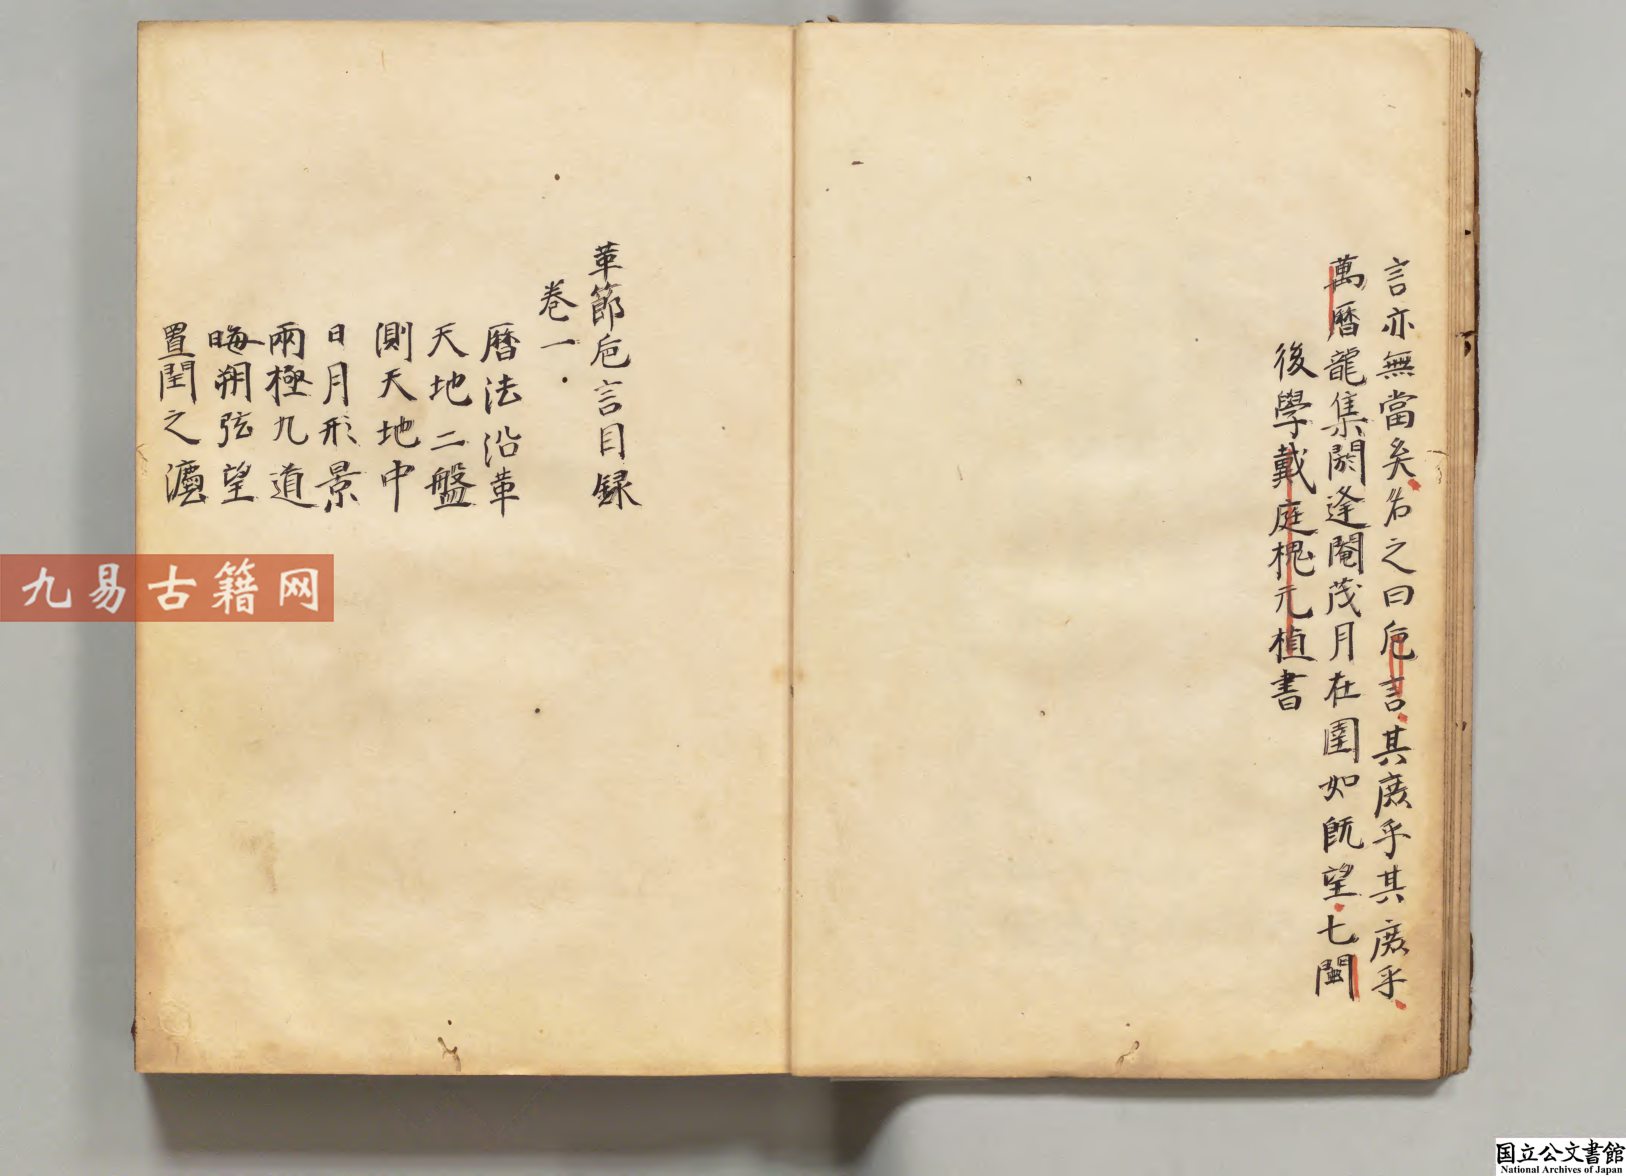 言亦無當矣名之曰巵言其庻乎其庻乎
萬曆龍集閼逢閹茂月在圉如既望七閩
後學戴庭槐元植書
革節巵言目録
卷一
曆法沿革
天地二盤
測天地中
日月形景
兩極九道
晦朔弦望
置閏之灋
九易古籍网
国立公文書館
National Archives of Japan